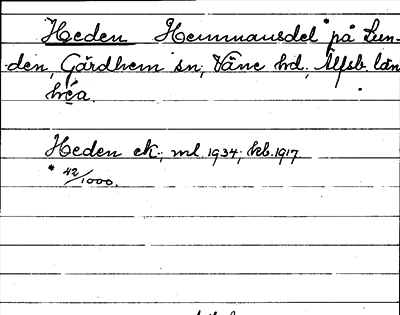 Heden Hemmansdel * på Lun-
den, Gärdhem sn, Väne hd, Älfsb. län
héa.
Heden ek., ml. 1934, kb. 1917.
* 42/1000.